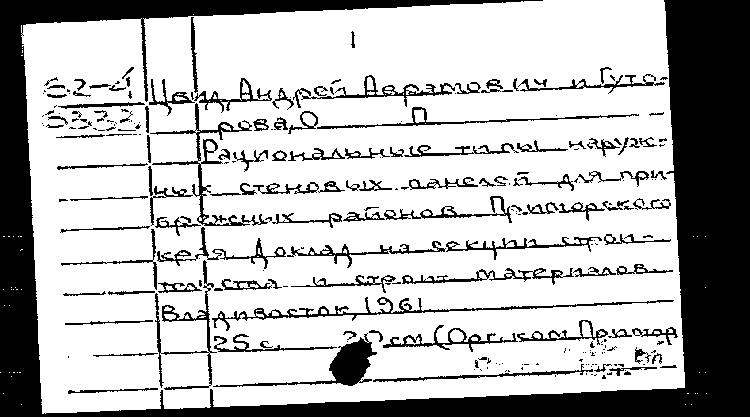 1
62-4 Цвид, Андрей Аврамович и Гуто-
5333 рова, О П
Рациональные типы наруж-
ных стеновых панелей для при-
брежных районов Приморского
края. Доклад на секции строи-
тельства и строит. материалов.
Владивосток, 1961
25 с. 20 см (Орг. ком. Примор